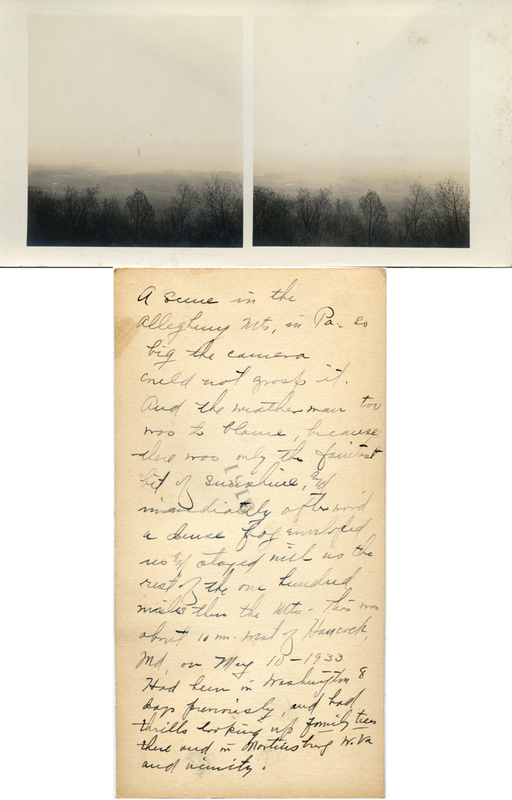 A scene in the
Allegheny Mts, in Pa. so
big the camera
could not grasp it.
And the weather man too
was to blame, because
there was only the faintest
bit of sunshine, and
immediately afterward
a dense fog enveloped
us and stayed with us the
rest of the one hundred
miles thru the Mts - This was
about 10 m. west of Hancock,
Md, on May 10 - 1933
Had been in Washington 8
days previously, and had
thrills looking up family trees
there and in Martinsburg W. Va
and vicinity.